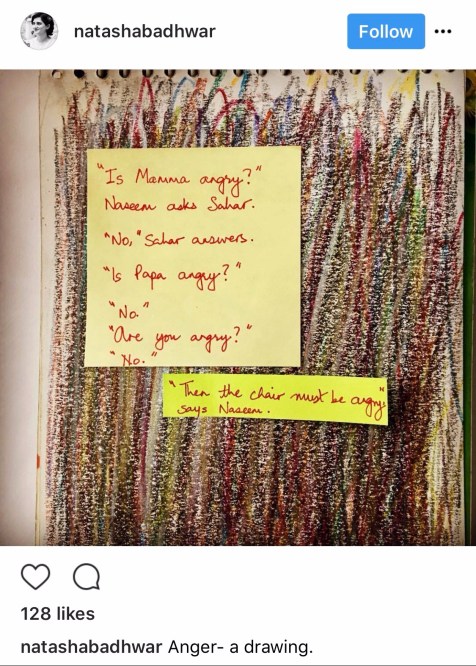 natashabadhwar
Follow
"Is Mamma angry?"
Naseem asks Sahar.
"No," Sahar answers.
"Is Papa angry?"
"No."
"Are you angry?"
"No."
"Then the chair must be angry,"
says Naseem.
128 likes
natashabadhwar Anger- a drawing.